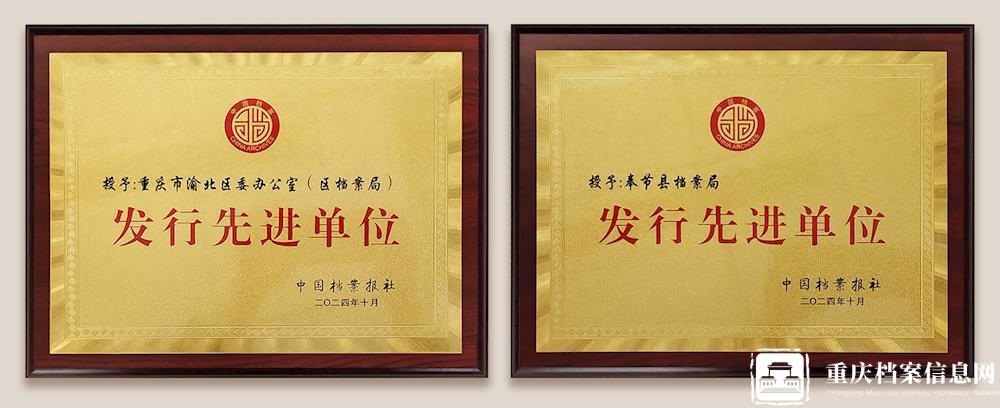 中国档案
CHINA ARCHIVES
授予:重庆市渝北区委办公室(区档案局)
发行先进单位
中国档案报社
二〇二四年十月
中国档案
CHINA ARCHIVES
授予:奉节县档案局
发行先进单位
中国档案报社
二〇二四年十月
重庆档案信息网
Chongqing Municipal Archives Information Network